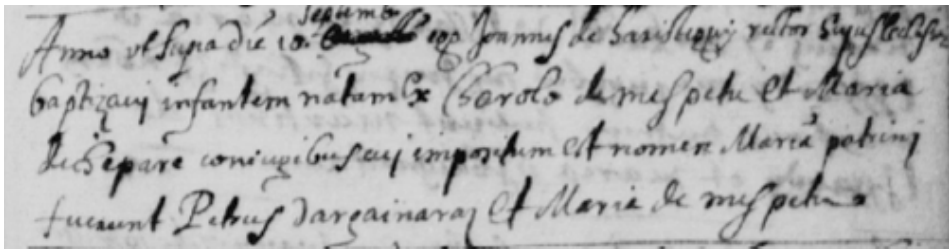 septemb
Anno ut supa die 10. ego Joannes de haristeguy rector hujus Ecclesiæ
baptizavi infantem natam Ex Charolo de mespetu et Maria
de hepare coniugibus cui impositum est nomen Maria patrini
fuerunt Petrus dargainaraz et Maria de mespetu